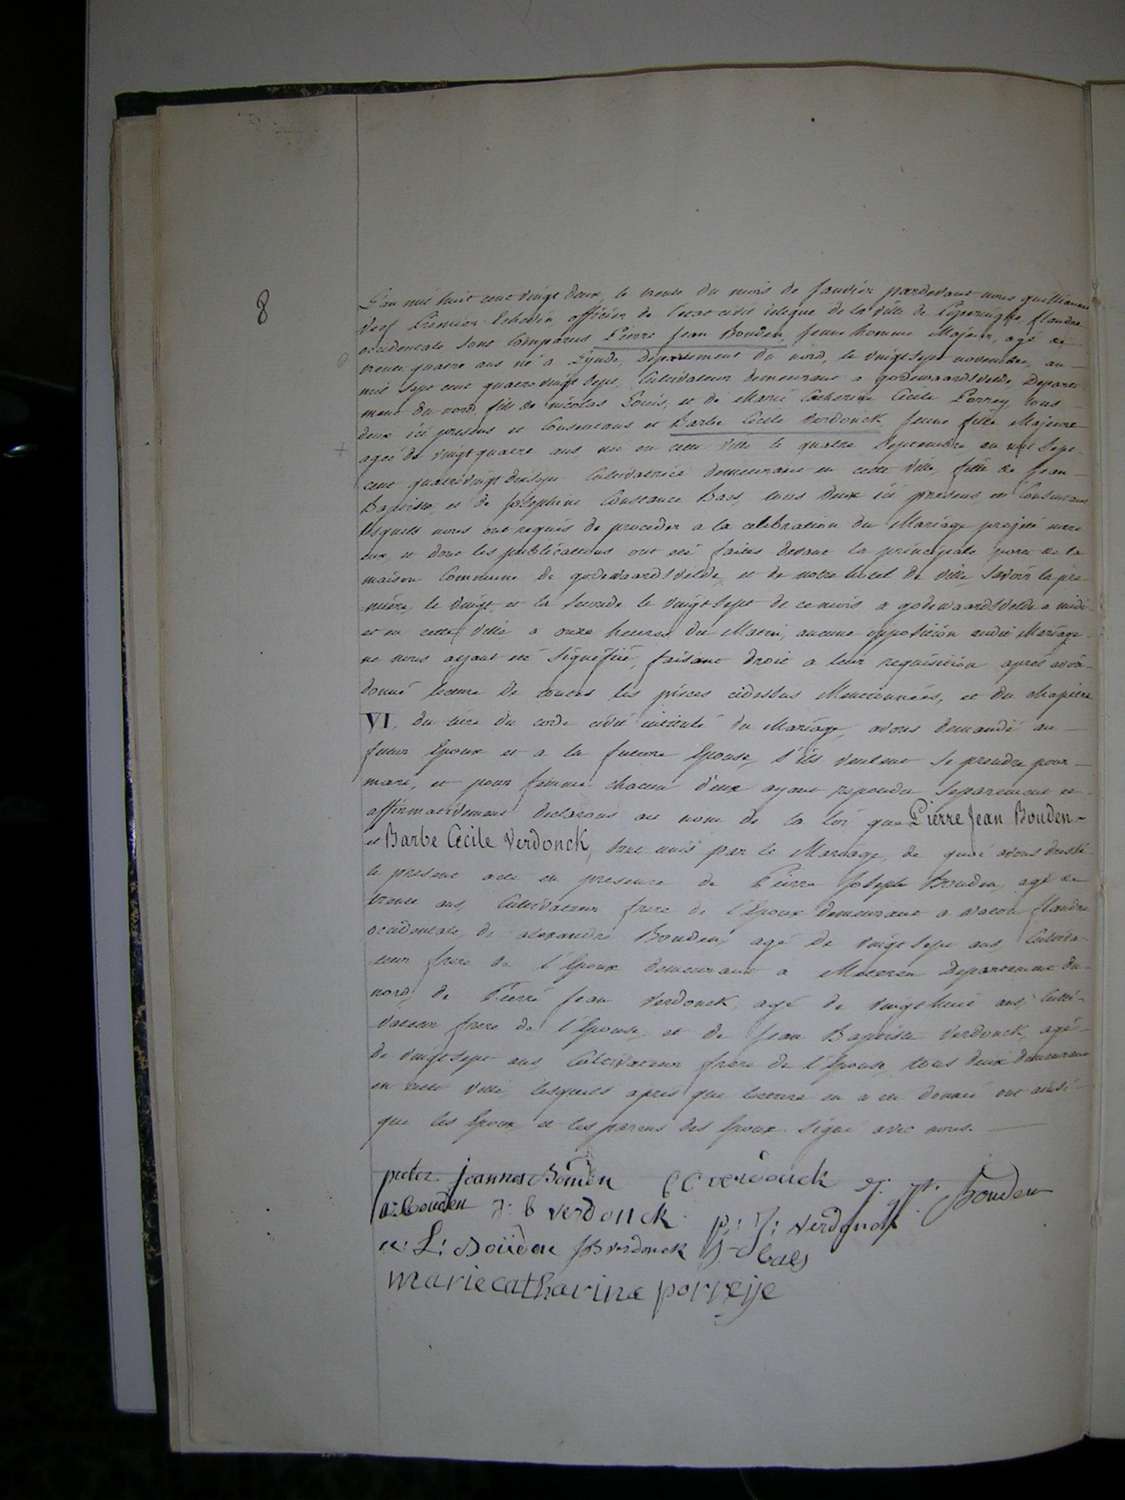 8
L'an mil huit cent vingt deux, le trente du mois de Janvier pardevant nous guillaume
Premier Echevin officier de l'etat civil de la ville de Poperinghe, flandre
occidentale sont comparus Pierre Jean Bouden, jeune homme Majeur, agé de
trente quatre ans né a département du nord, le vingt sept novembre, an
mil sept cent quatre vingt sept, Cultivateur demeurant a godewaardsvelde, Departe
ment du nord, fils de nicolas Louis, et de Marie Catherine Cecile tous
deux ici presens et Consentans et Barbe Cecile Verdonck jeune fille Majeure
agee de vingt quatre ans née en cette ville le quatre Septembre an mil Sept
cent quatre vingt dix sept Cultivatrice demeurant en cette ville, fille de Jean
Baptiste et de Josephine Constance Baes, tous deux ici presens, et Consentans
lesquels nous ont requis de proceder a la celebration du Mariage projeté entre
eux, et dont les publications ont été faites devant la principale porte de la
maison Commune de godewaardsvelde, et de notre hotel de ville, Savoir la pre
miere, le vingt, et la seconde le vingt sept de ce mois a godewaardsvelde a midi
et en cette ville a onze heures du Matin, aucune opposition audit Mariage
ne nous ayant été signifiée, faisant droit a leur requisition, après avoir
donné lecture de toutes les pièces cidessus Mentionnées, et du chapitre
VI. du titre du code civil intitulé du Mariage, avons demandé au
futur Epoux et a la future Epouse, s'ils veulent se prendre pour
mari, et pour femme chacun d'eux ayant repondu Separement et
affirmativement declarons au nom de la loi que Pierre Jean Bouden
et Barbe Cecile Verdonck, sont unis par le Mariage, de quoi avons dressé
le present acte en presence de Pierre Joseph Bouden, agé de
trente ans, Cultivateur frere de l'Epoux demeurant a watou flandre
occidentale, de alexandre Bouden, agé de vingt sept ans Cultiva-
teur frere de l'Epoux demeurant à Departement du
nord, de Pierre Jean Verdonck, agé de vingt huit ans, Culti-
vateur frere de l'Epouse, et de Jean Baptiste Verdonck, agé
de vingt sept ans, Cultivateur frere de l'Epouse, tous deux demeurant
en cette ville, lesquels apres que lecture en a été donnée ont ainsi
que les Epoux et les parens des Epoux signé avec nous.
pieter Joannes Bouden B C verdonck P. J. Bouden
a: Bouden J: b verdonck P: J: verdonck
N: L: Bouden JB verdonck J C baes
marie catharina porreije